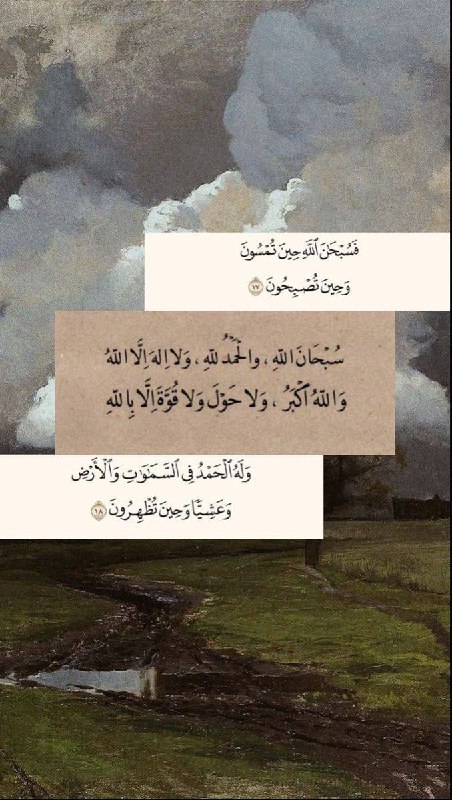 فَسُبْحَٰنَ ٱللَّهِ حِينَ تُمْسُونَ
وَحِينَ تُصْبِحُونَ ١٧
سُبْحَانَ اللّٰهِ ، والْحَمْدُ لِلّٰهِ ، وَلا اِلهَ اِلَّا اللّٰهُ
وَ اللّٰهُ اَكْبَرُ ، وَلا حَوْلَ وَلا قُوَّةَ اِلَّا بِاللّٰهِ
وَلَهُ ٱلْحَمْدُ فِى ٱلسَّمَٰوَٰتِ وَٱلْأَرْضِ
وَعَشِيًّا وَحِينَ تُظْهِرُونَ ١٨